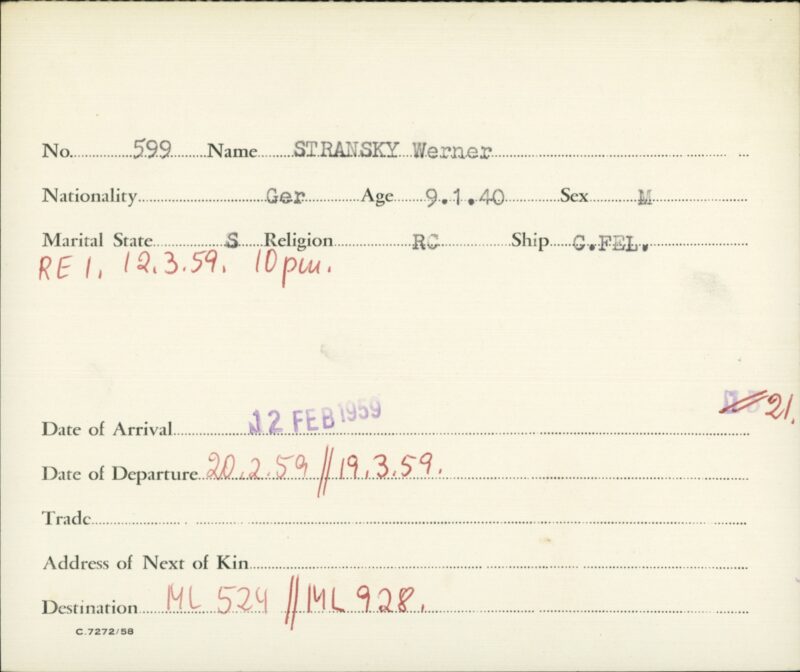 No. 599 Name STRANSKY Werner
Nationality Ger Age 9.1.40 Sex M
Marital State S Religion RC Ship C.FEL.
RE 1. 12.3.59. 10pm.
21.
Date of Arrival 12 FEB 1959
Date of Departure 20.2.59 // 19.3.59.
Trade
Address of Next of Kin
Destination ML 524 // ML 928.
C.7272/58